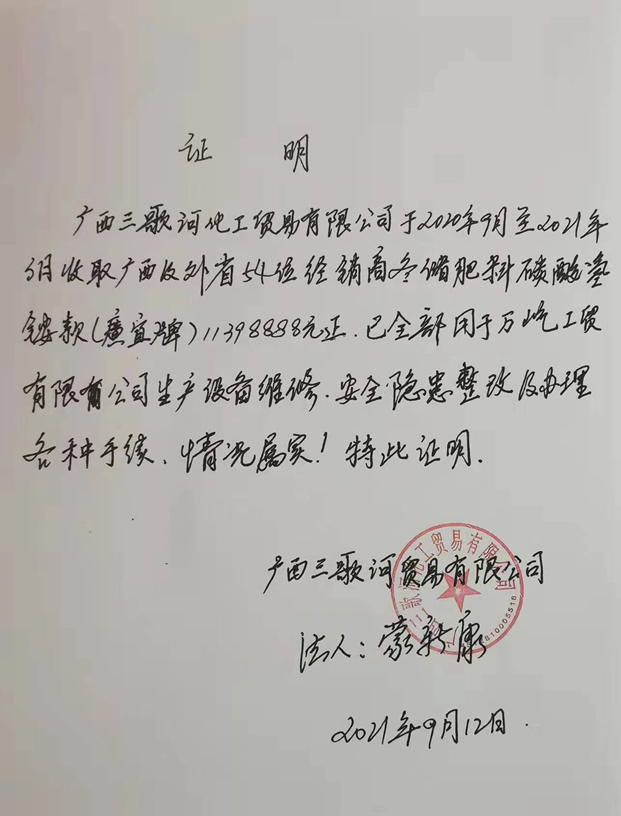 证 明
广西三歌河化工贸易有限公司于2020年9月至2021年
5月收取广西及外省54位经销商冬储肥料磷酸氢
铵款(广宜牌)11398888元正.已全部用于万屹工贸
有限公司生产设备维修.安全隐患整改及办理
各种手续、情况属实!特此证明.
广西三歌河贸易有限公司
法人:蒙新康
2021年9月12日.
歌河化工贸易有限公司